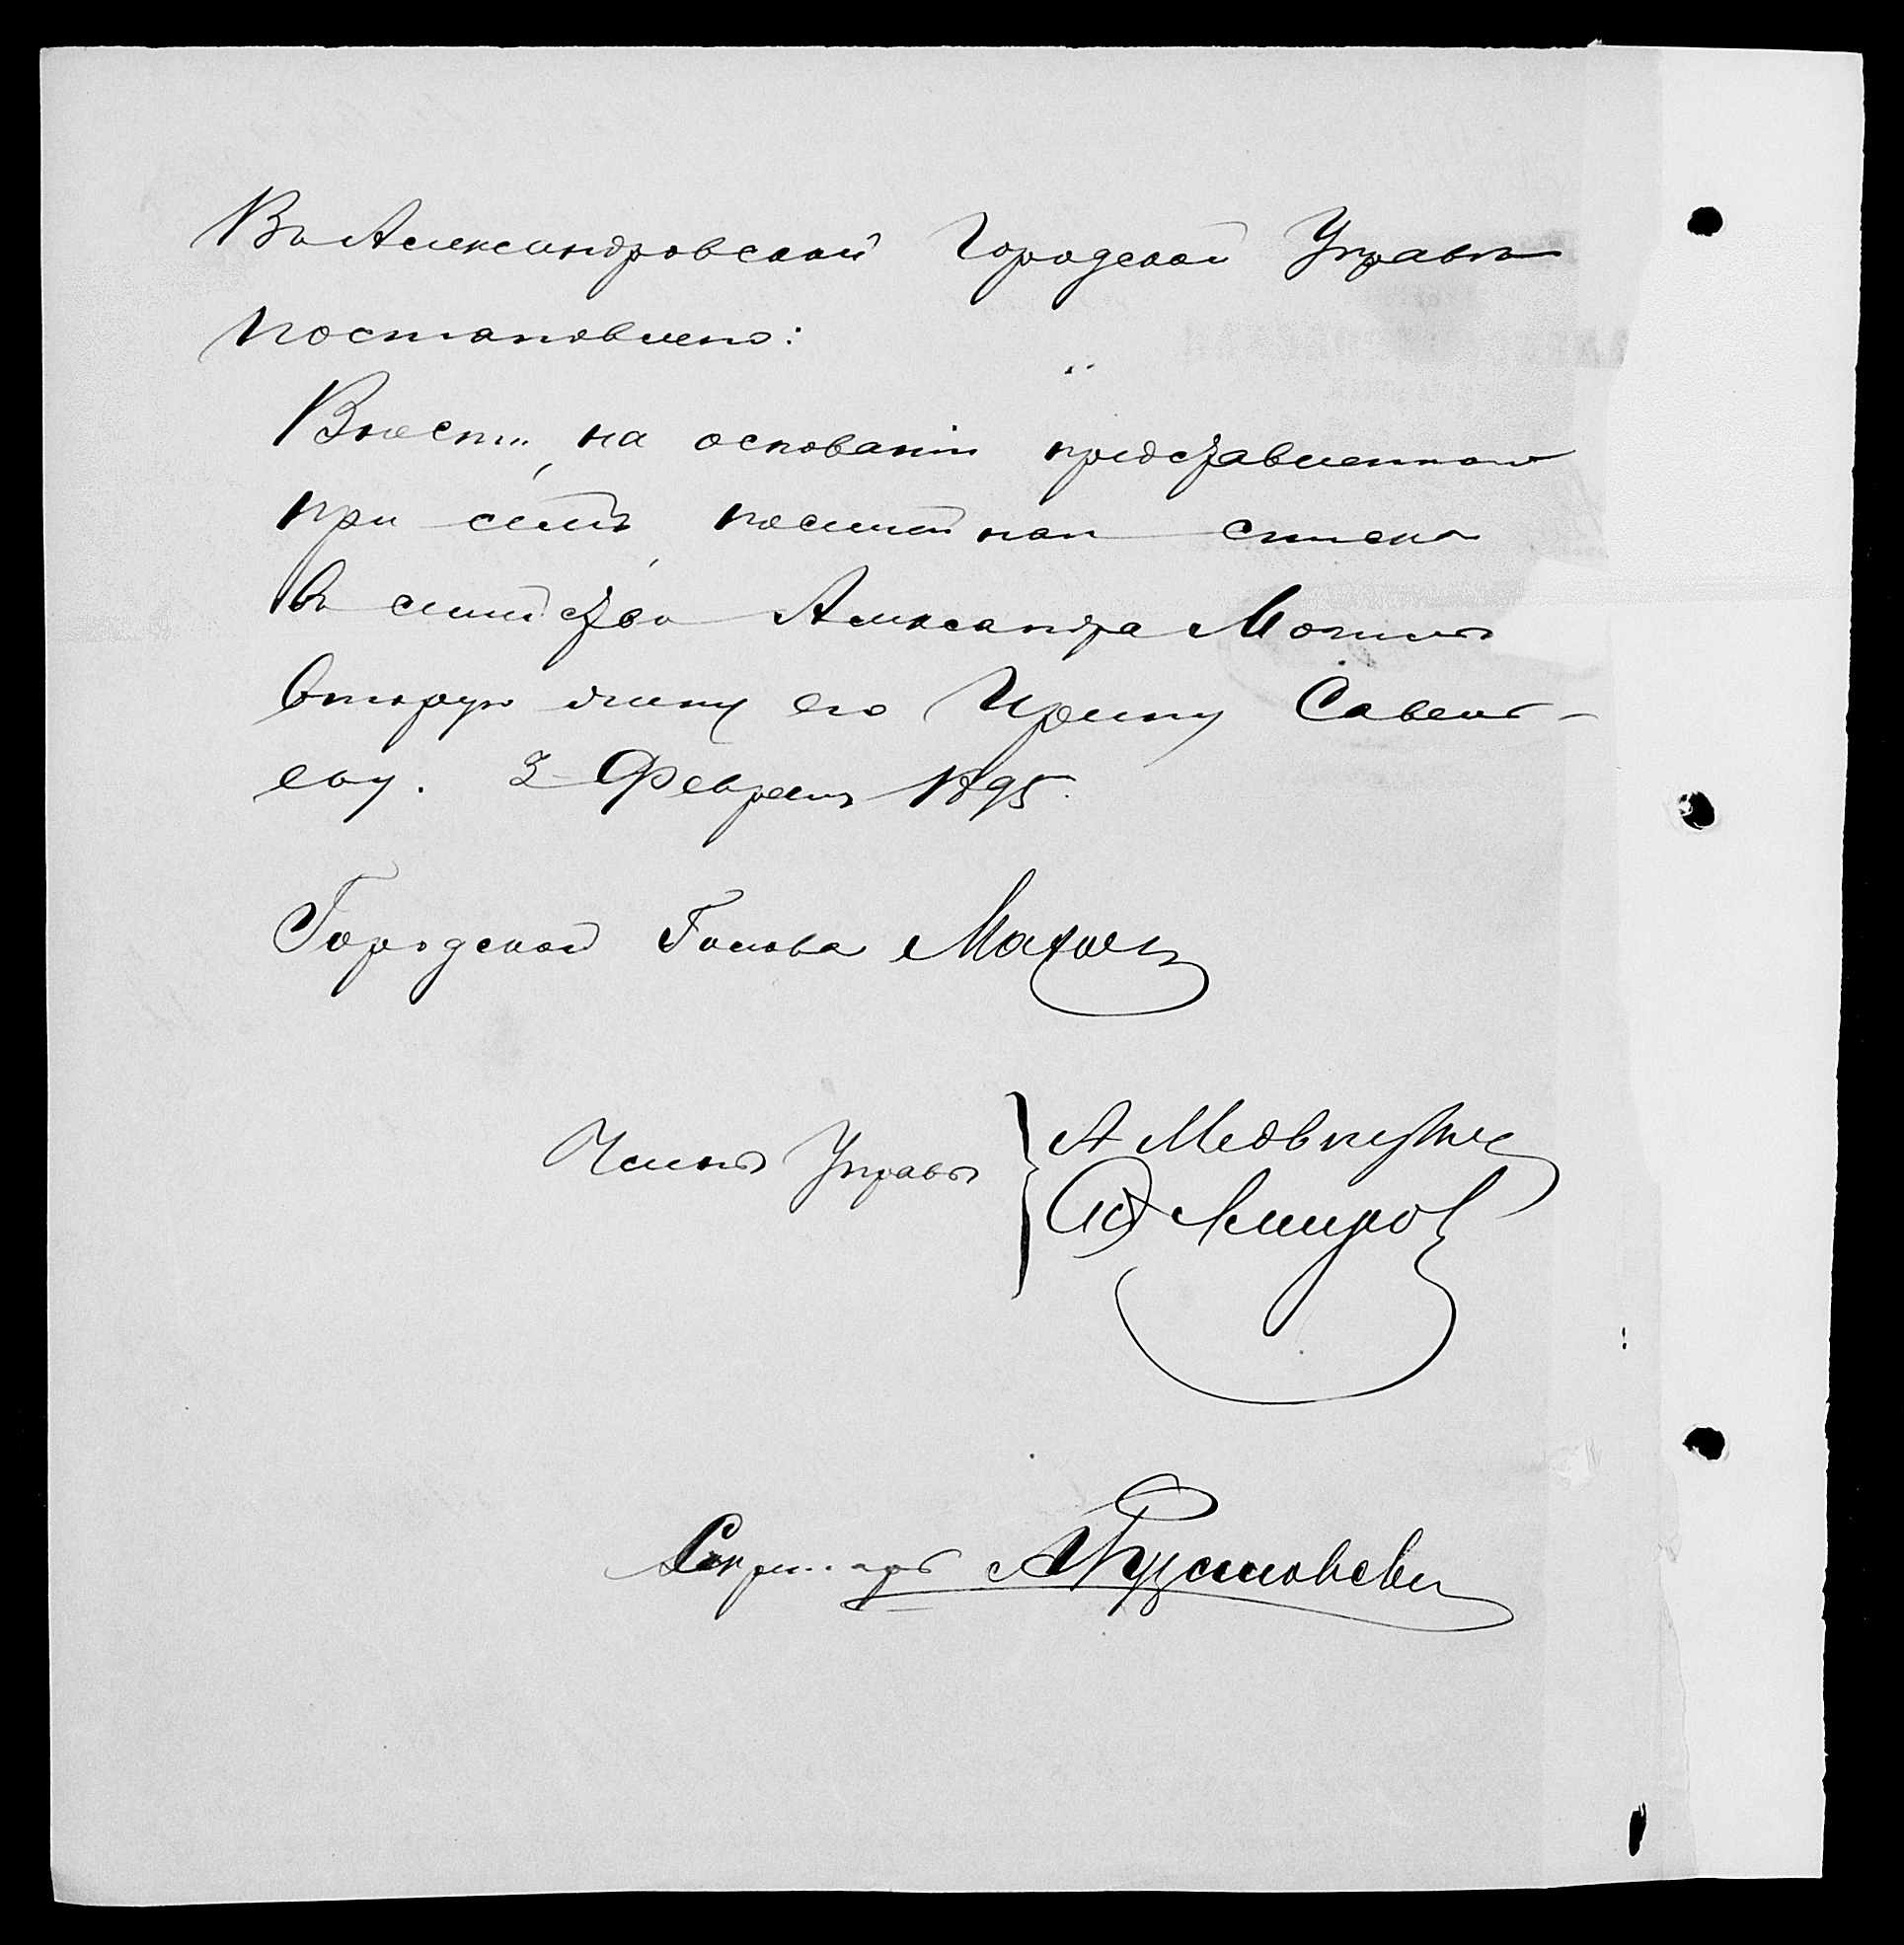 Въ Александровской Городской Управѣ
постановлено:
Внести, на основаніи представленнаго
при семъ посемейнаго списка
въ семейство Александра
вторую жену его Ирину Савель-
еву. 3 Февраля 1895.
Городской Голова
Члены Управы
Секретарь